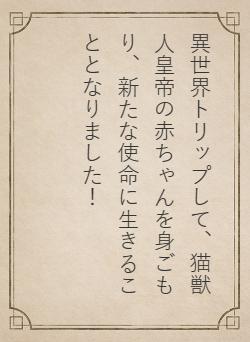 異世界トリップして、猫獣
人皇帝の赤ちゃんを身ごも
り、新たな使命に生きるこ
ととなりました！